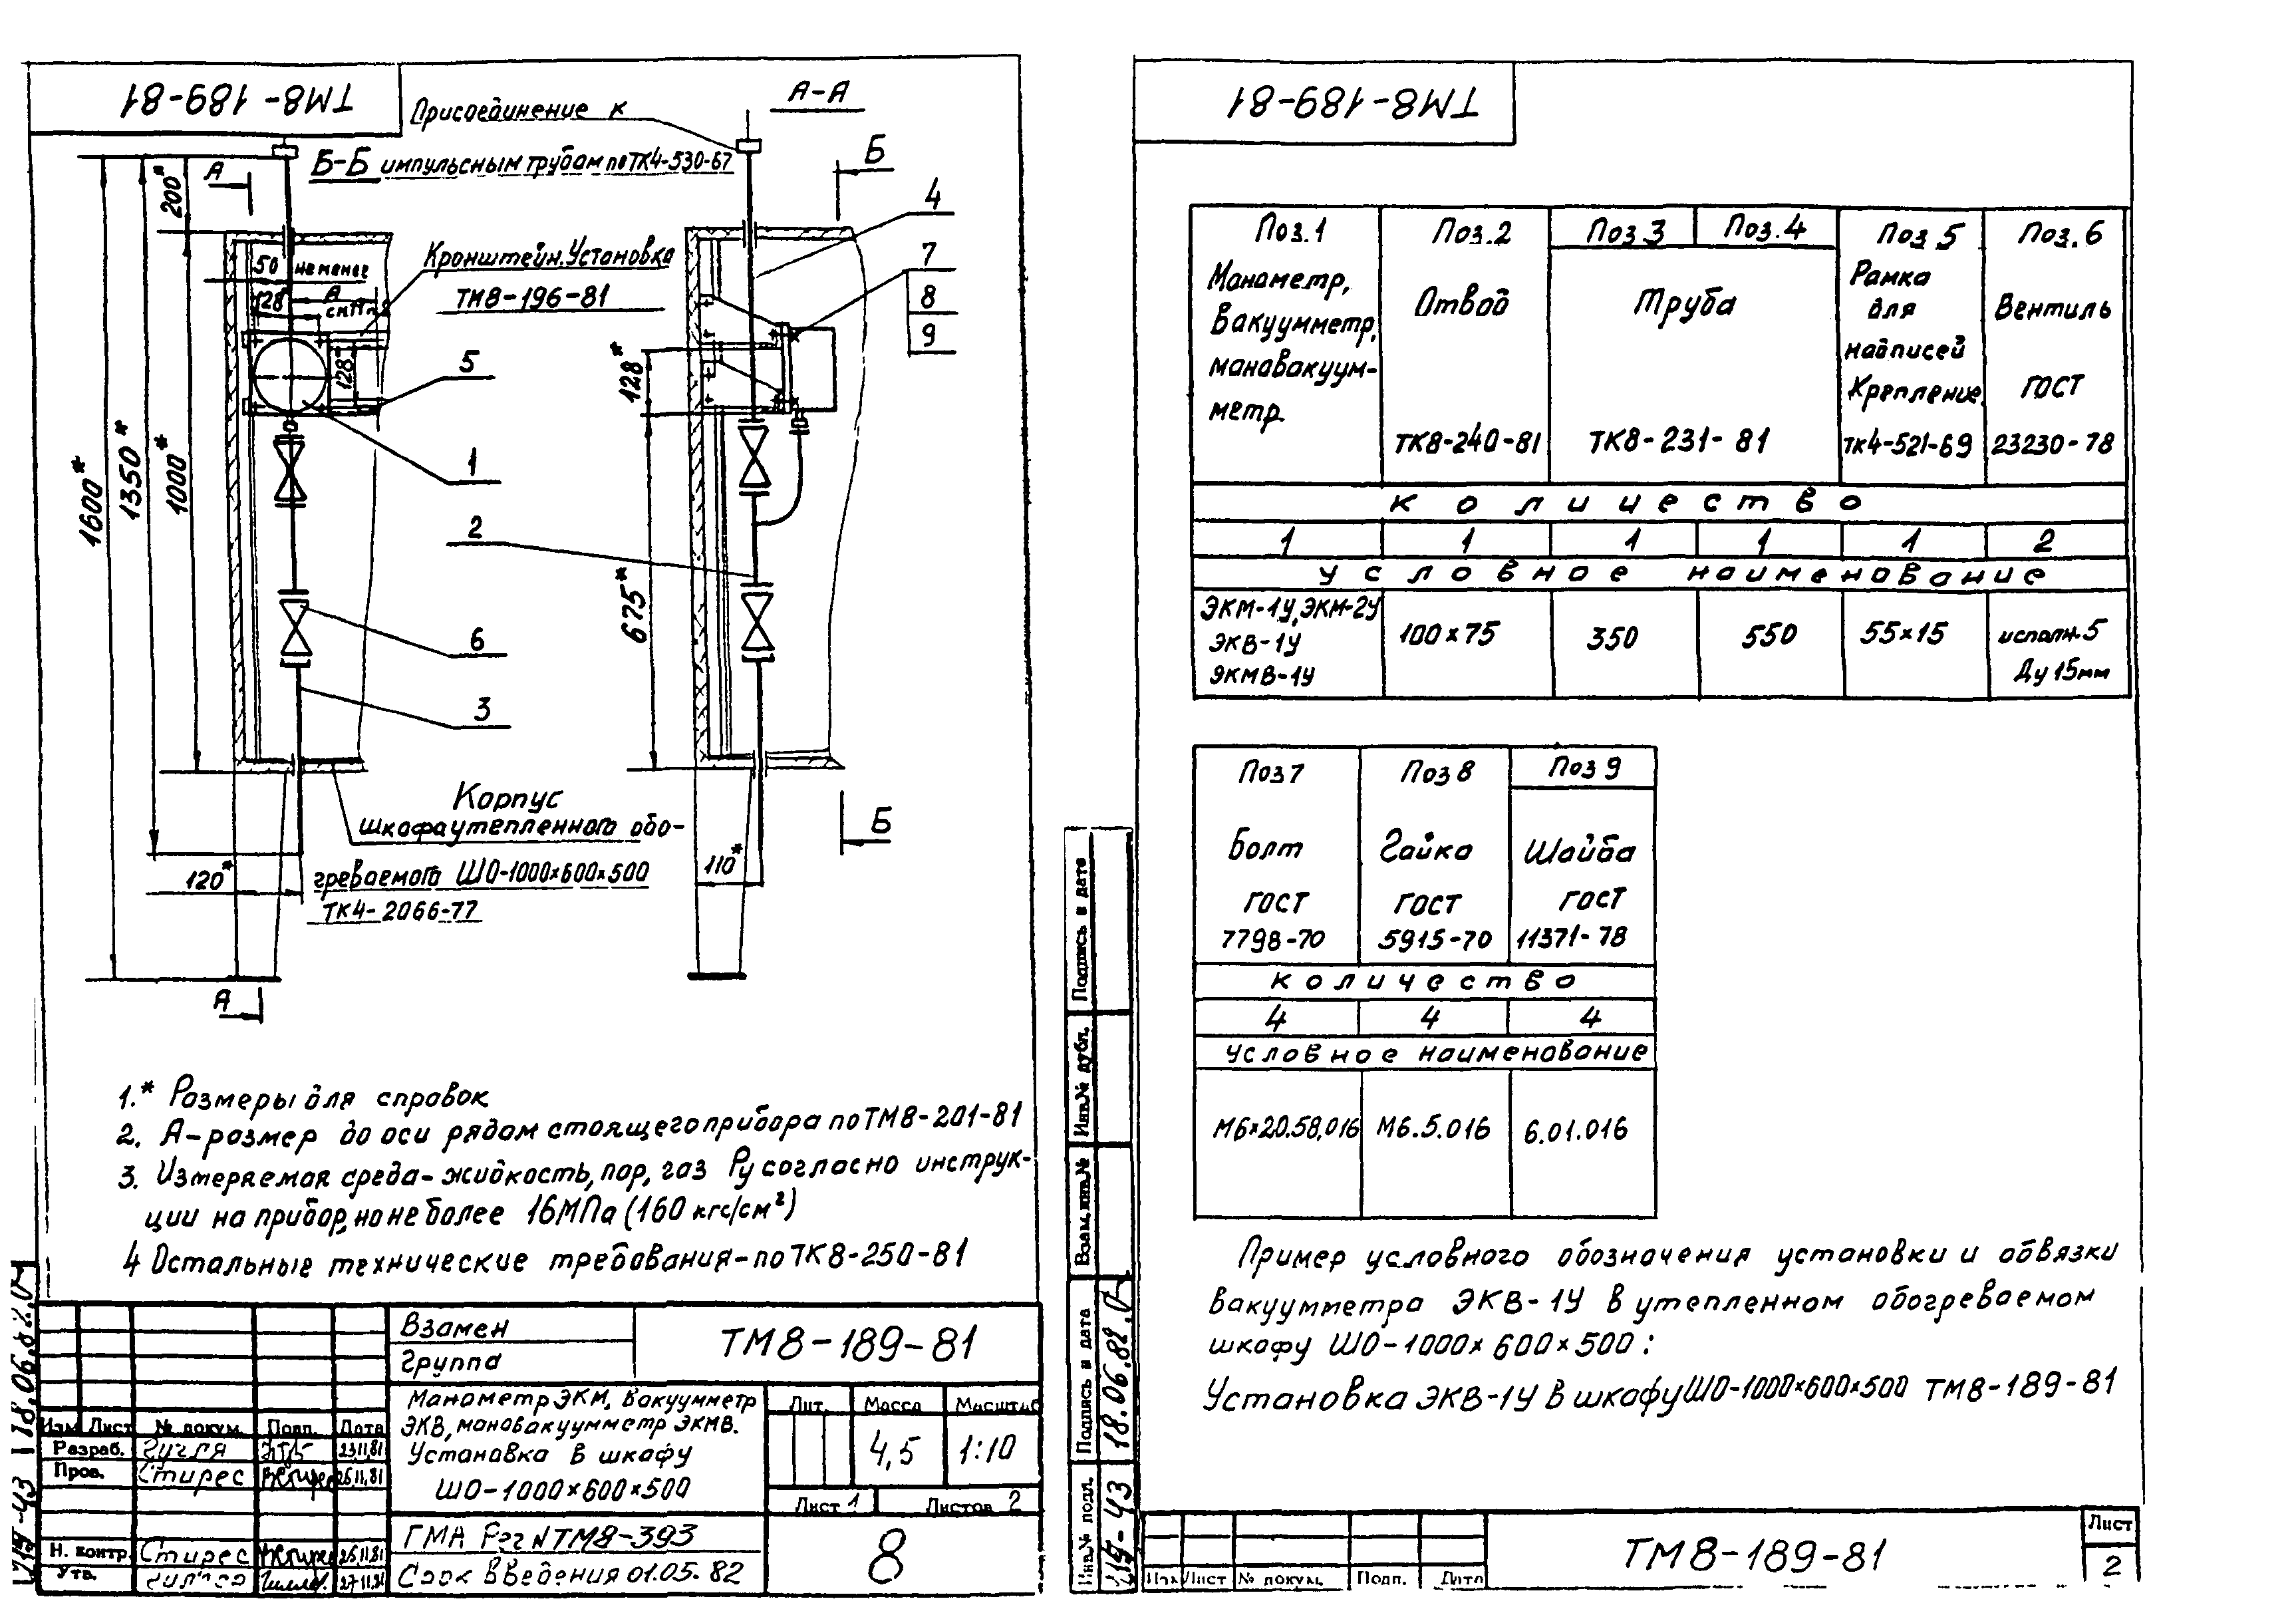 ТМ8-189-81
Присоединение к
импульсным трубам по ТК4-530-67
Б-Б
А-А
А
Б
200*
50 не менее
128*
А
см. п. 2
Кронштейн. Установка
ТМ8-196-81
128*
5
1
2
6
3
1600*
1350*
1000*
120*
А
4
7
8
9
128*
675*
110*
Б
Корпус
шкафа утепленного обо-
греваемого ШО-1000×600×500
ТК4-2066-77
1.* Размеры для справок
2. А-размер до оси рядом стоящего прибора по ТМ8-201-81
3. Измеряемая среда-жидкость, пар, газ Ру согласно инструк-
ции на прибор, но не более 16МПа (160 кгс/см²)
4 Остальные технические требования-по ТК8-250-81
Взамен
Группа
ТМ8-189-81
Манометр ЭКМ, вакуумметр
ЭКВ, мановакуумметр ЭКМВ.
Установка в шкафу
ШО-1000×600×500
Лит. Масса Масштаб
4,5 1:10
Лист 1 Листов 2
Изм Лист № докум. Подп. Дата
Разраб. 23.11.81
Пров. Стирес 25.11.81
Н. контр. Стирес 25.11.81
Утв. 27.11.81
ГМА Рег N ТМ8-393
Срок введения 01.05.82
8
18.06.82
ТМ8-189-81
Поз.1 Поз.2 Поз 3 Поз.4 Поз 5 Поз.6
Манометр, вакуумметр, мановакуум-метр. Отвод Труба Рамка для надписей Крепление. Вентиль ГОСТ
ТК8-240-81 ТК8-231-81 ТК4-521-69 23230-78
Количество
1 1 1 1 1 2
Условное наименование
ЭКМ-1У, ЭКМ-2У
ЭКВ-1У 100×75 350 550 55×15 исполн. 5
ЭКМВ-1У Ду 15мм
Поз 7 Поз 8 Поз 9
Болт Гайка Шайба
ГОСТ ГОСТ ГОСТ
7798-70 5915-70 11371-78
Количество
4 4 4
Условное наименование
М6×20.58.016 М6.5.016 6.01.016
Пример условного обозначения установки и обвязки
вакуумметра ЭКВ-1У в утепленном обогреваемом
шкафу ШО-1000×600×500:
Установка ЭКВ-1У в шкафу ШО-1000×600×500 ТМ8-189-81
Подпись и дата
Инв.№ дубл.
Взам.инв.№
Подпись и дата
18.06.82
Инв.№ подл.
Изм Лист № докум. Подп. Дата
ТМ8-189-81
Лист
2